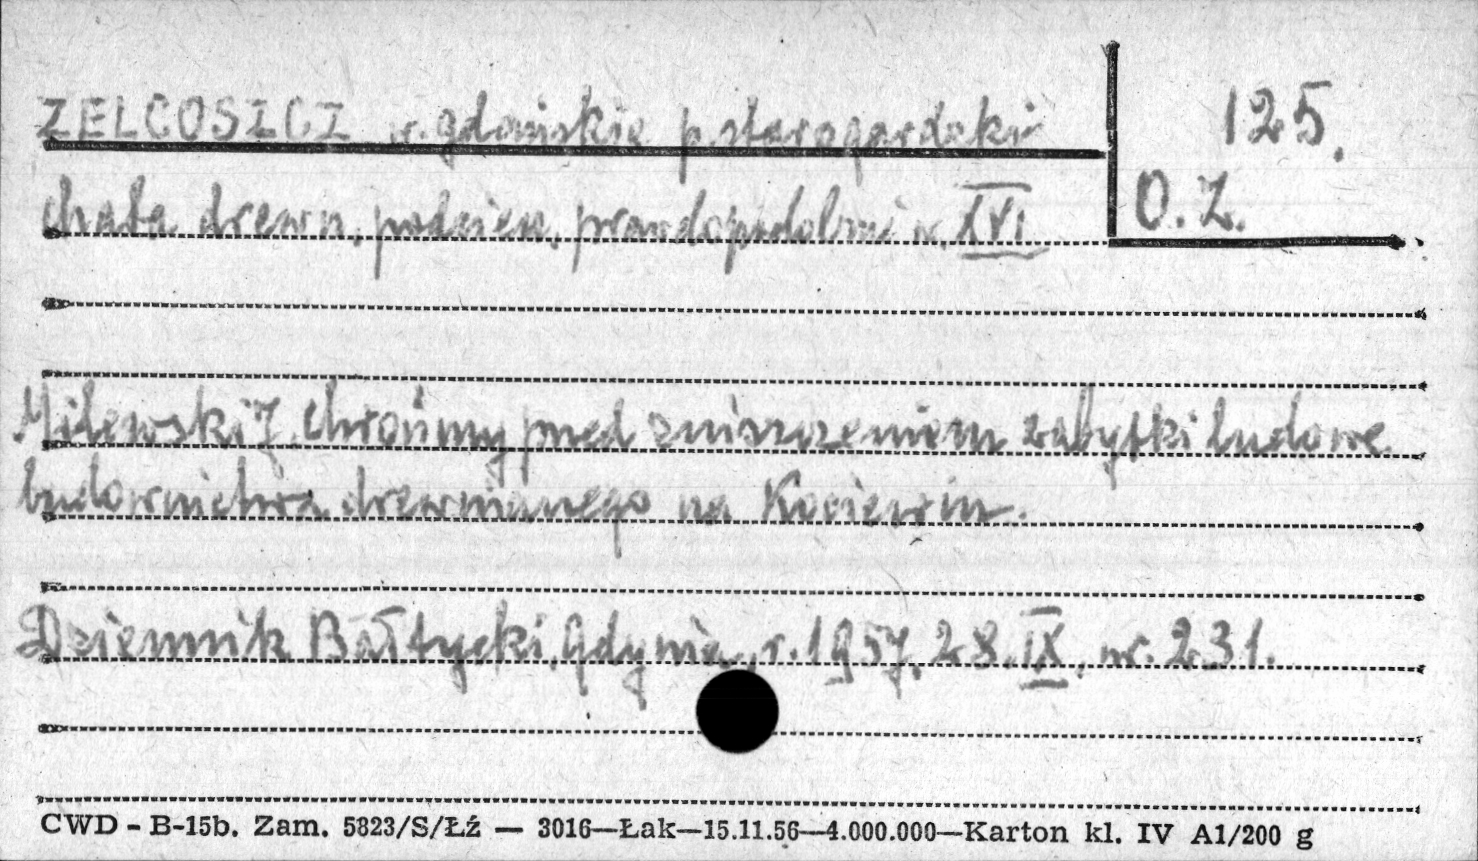 ZELGOSZCZ w. gdańskie p. starogardzki
125.
O. Z.
chata drewn. podcien. prawdopodobnie w. XVI
Milewski J. Chrońmy przed zniszczeniem zabytki ludowe
budownictwa drewnianego na Kociewiu.
Dziennik Bałtycki, Gdynia, r. 1957, 28. IX, nr. 231.
CWD - B-15b. Zam. 5823/S/Łź — 3016—Łak—15.11.56—4.000.000—Karton kl. IV A1/200 g